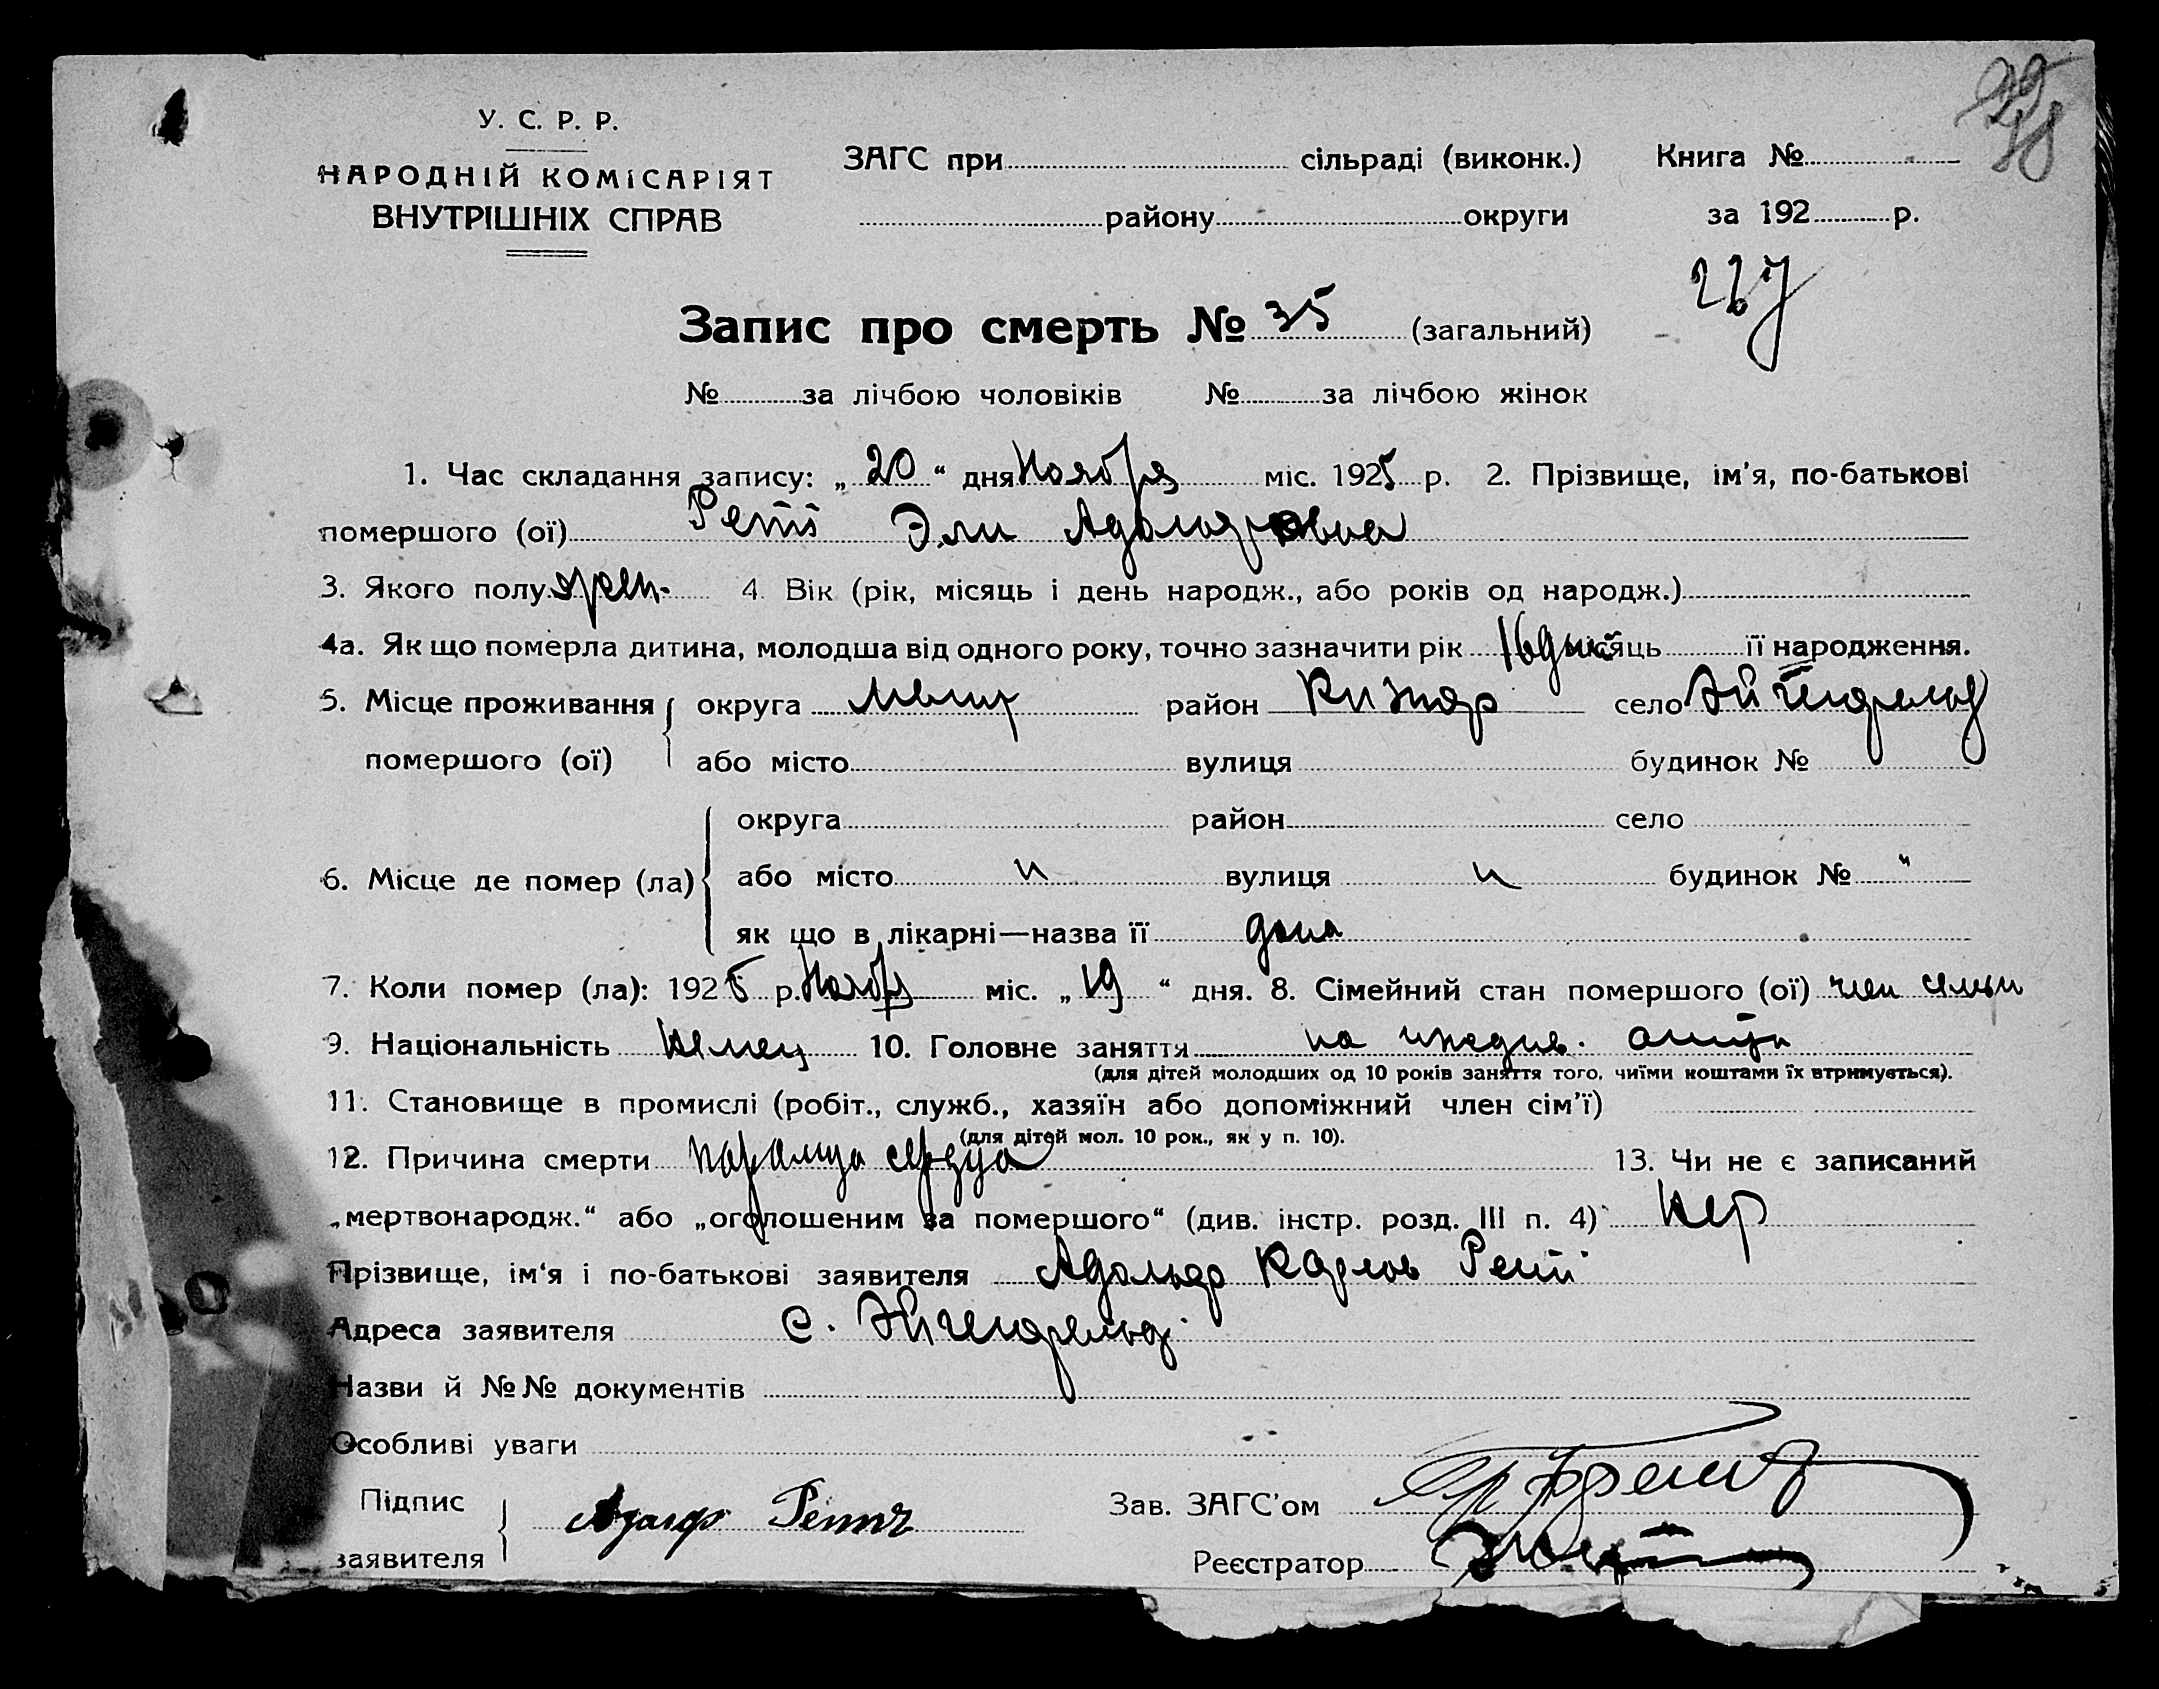 98
У. С. Р. Р.
НАРОДНІЙ КОМІСАРІЯТ
ВНУТРІШНІХ СПРАВ
ЗАГС при сільраді (виконк.) Книга №
району округи за 192 р.
Запис про смерть № 35 (загальний)
№ за лічбою чоловіків № за лічбою жінок
1. Час складання запису: „20“ дня Ноября міс. 1925 р. 2. Прізвище, ім'я, по-батькові
помершого (ої) Эли Адольфовна
3. Якого полу жен. 4. Вік (рік, місяць і день народж., або років од народж.)
4а. Як що померла дитина, молодша від одного року, точно зазначити рік 16 дней місяць її народження.
5. Місце проживання помершого (ої) округа Мелит район село Эйгенфельд
або місто вулиця будинок №
6. Місце де помер (ла) округа район село
або місто " вулиця " будинок № "
як що в лікарні—назва її дома
7. Коли помер (ла): 1925 р. Ноябр міс. „19“ дня. 8. Сімейний стан помершого (ої) член семьи
9. Національність немец 10. Головне заняття на иждив. отца
(для дітей молодших од 10 років заняття того, чиїми коштами їх втримується).
11. Становище в промислі (робіт., служб., хазяїн або допоміжний член сім'ї)
(для дітей мол. 10 рок., як у п. 10).
12. Причина смерти паралич сердца 13. Чи не є записаний
„мертвонародж.“ або „оголошеним за помершого“ (див. інстр. розд. III п. 4) нет
Прізвище, ім'я і по-батькові заявителя Адольф Карлов
Адреса заявителя с. Эйгенфельд
Назви й №№ документів
Особливі уваги
Підпис заявителя Адолф
Зав. ЗАГС'ом
Реєстратор